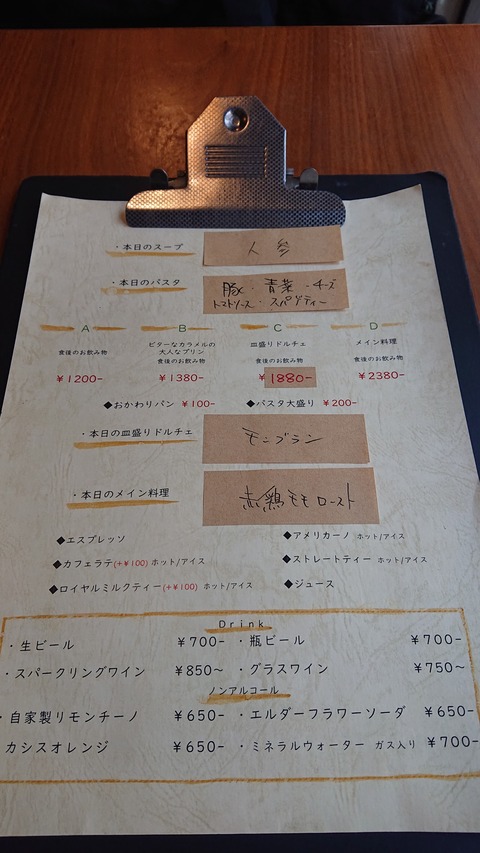 ・本日のスープ 人参
・本日のパスタ 豚・青菜・チーズ
トマトソース・スパゲティー
A B C D
食後のお飲み物 ビターなカラメルの大人なプリン 食後のお飲み物 皿盛りドルチェ 食後のお飲み物 メイン料理 食後のお飲み物
¥1200- ¥1380- ¥1880- ¥2380-
◆おかわりパン ¥100- ◆パスタ大盛り ¥200-
・本日の皿盛りドルチェ モンブラン
・本日のメイン料理 赤鶏モモロースト
◆エスプレッソ ◆アメリカーノ ホット/アイス
◆カフェラテ(+¥100) ホット/アイス ◆ストレートティー ホット/アイス
◆ロイヤルミルクティー(+¥100) ホット/アイス ◆ジュース
Drink
・生ビール ¥700- ・瓶ビール ¥700-
・スパークリングワイン ¥850～ ・グラスワイン ¥750～
ノンアルコール
・自家製リモンチーノ ¥650- ・エルダーフラワーソーダ ¥650-
カシスオレンジ ¥650- ・ミネラルウォーター ガス入り ¥700-